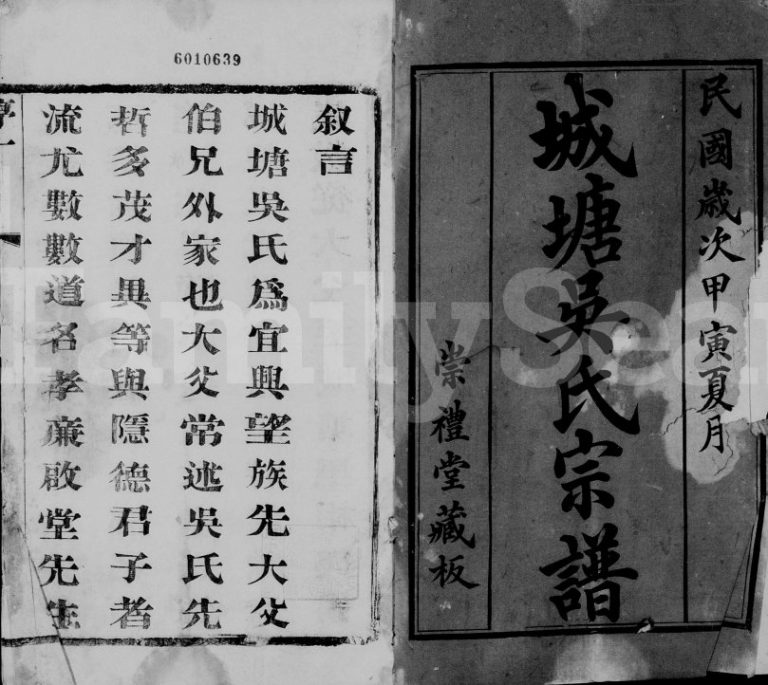 民國歲次甲寅夏月
城塘吳氏宗譜
崇禮堂藏板
6010639
叙言
城塘吳氏爲宜興望族先大父
伯兄外家也大父常述吳氏先
哲多茂才異等與隱德君子者
流尤數數道名孝廉啟堂先生
序一
FamilySear